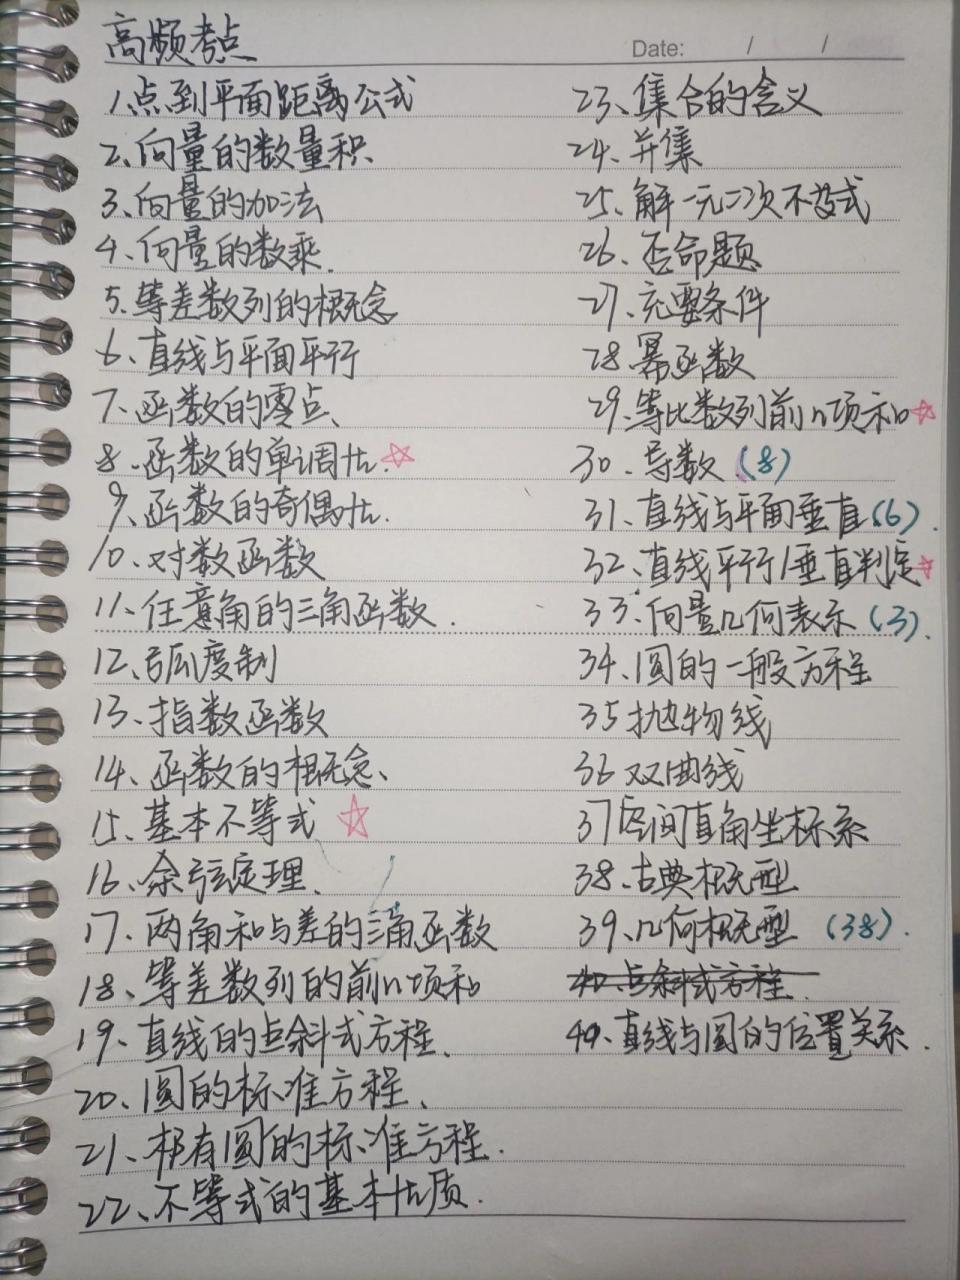 高频考点
Date: / /
1.点到平面距离公式
2、向量的数量积
3、向量的加法
4、向量的数乘.
5、等差数列的概念
6、直线与平面平行
7、函数的零点、
8、函数的单调性.☆
9、函数的奇偶性.
10、对数函数
11、任意角的三角函数.
12、弧度制
13、指数函数
14、函数的概念、
15、基本不等式 ☆
16、余弦定理.
17、两角和与差的三角函数
18、等差数列的前n项和
19、直线的点斜式方程.
20、圆的标准方程、
21、 圆的标准方程.
22、不等式的基本性质.
23、集合的含义
24、并集
25、解一元二次不等式
26、否命题
27、充要条件
28幂函数
29、等比数列前n项和☆
30.导数(8)
31、直线与平面垂直(6).
32、直线平行/垂直判定☆
33.向量几何表示(3).
34.圆的一般方程
35抛物线
36双曲线
37空间直角坐标系
38.古典概型
39.几何概型 (38).
40.点斜式方程.
40.直线与圆的位置关系.